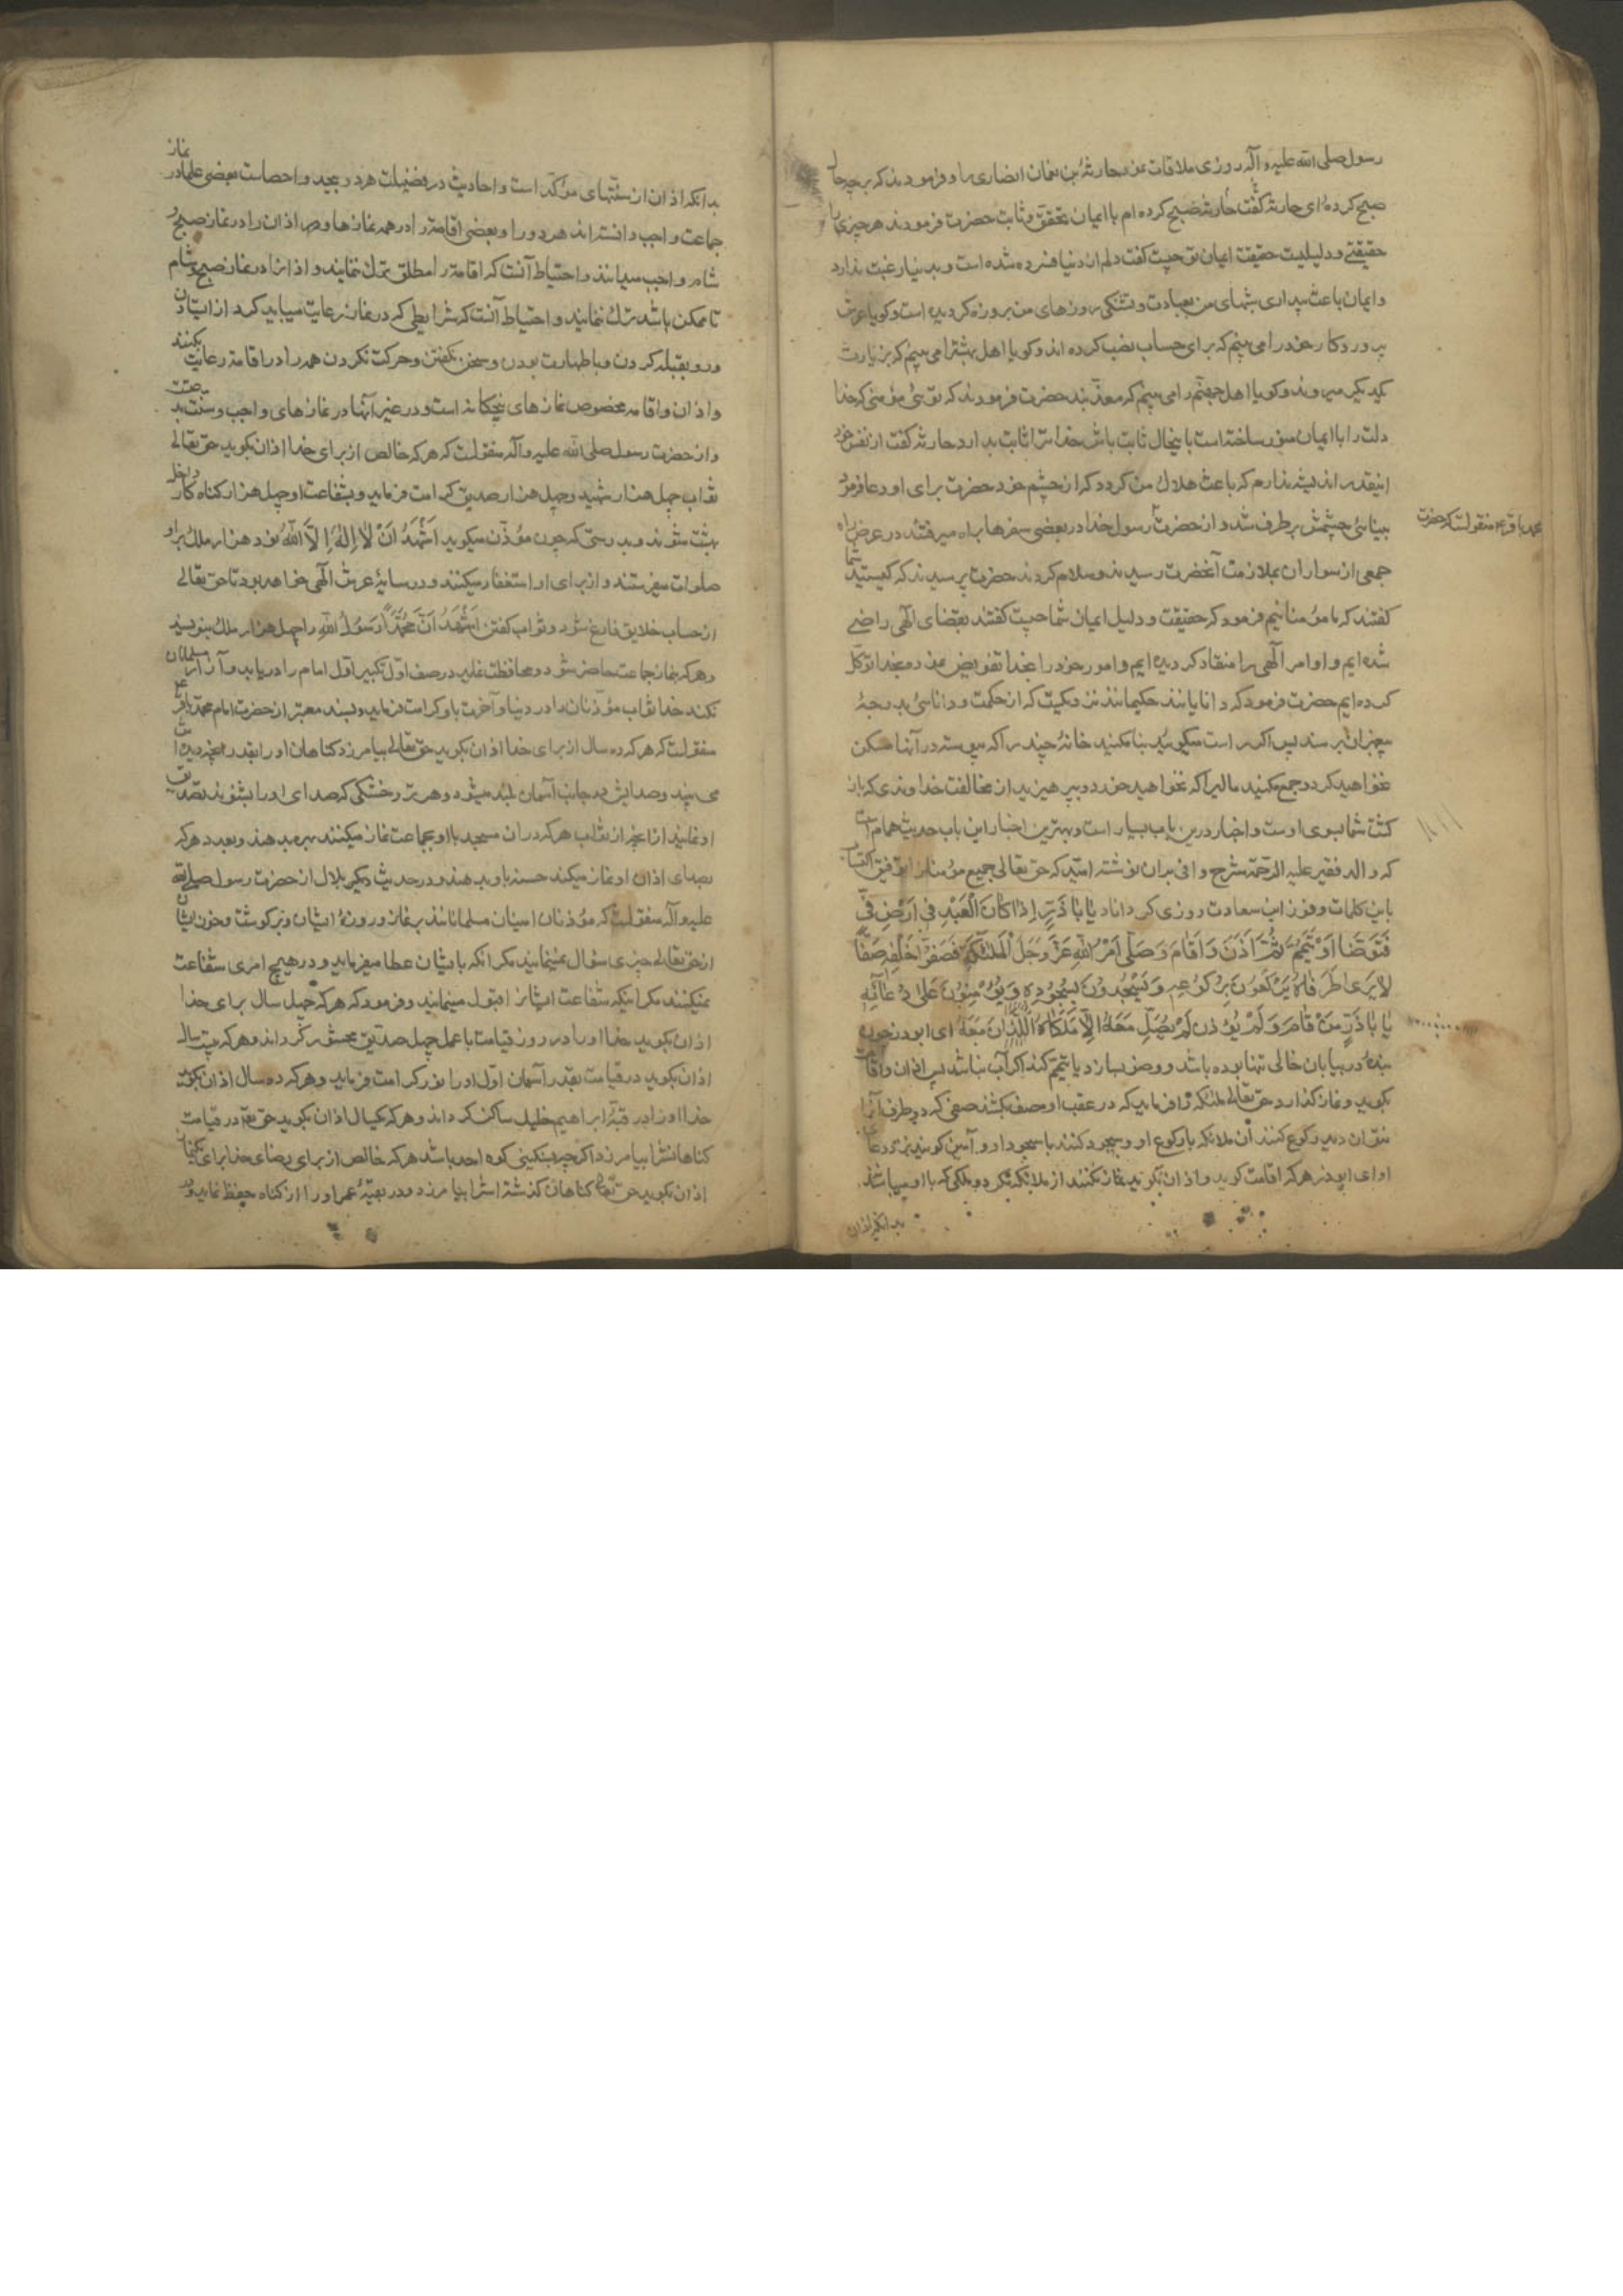 رسول صلی الله علیه و آله روزی ملاقات نمود حارثة بن نعمان انصاری را و فرمودند که بر چه حال
صبح کردهٔ ای حارثه گفت حارثه صبح کرده ام با ایمان محقق و ثابت حضرت فرمودند هر چیزی را
حقیقتی و دلیلیست حقیقت ایمان تو چیست گفت دلم از دنیا فسرده شده است و بدنیا رغبت ندارد
و ایمان باعث بیداری شبهای من بعبادت و تشنگی روزهای من بروزه گردیده است و گویا عرش
پروردگار خود را می بینم که برای حساب نصب کرده اند و گویا اهل بهشت را می بینم که بزیارت
یکدیگر میروند و گویا اهل جهنم را می بینم که معذّبند حضرت فرمودند که توئی مؤمنی که خدا
دلت را با ایمان منور ساخته است باینحال ثابت باش خدا ترا ثابت بدارد حارثه گفت از نفس خود
اینقدر اندیشه ندارم که باعث هلاک من گردد که از چشم خود حضرت برای او دعا فرمود
بینائی چشمش برطرف شد و از حضرت رسول خدا در بعضی سفرها براه میرفتند در عرض راه
محمد باقر ع منقولست که حضرت
جمعی از سواران بملازمت آنحضرت رسیدند و سلام کردند حضرت پرسیدند که کیستید شما
گفتند که ما مؤمنانیم فرمود که حقیقت و دلیل ایمان شما چیست گفتند بقضای الهی راضی
شده ایم و اوامر الهی را منقاد گردیده ایم و امور خود را بخدا تفویض نموده بخدا توکل
کرده ایم حضرت فرمود که دانایانند حکیمانند نزدیکست که از حکمت و دانائی بدرجهٔ
پیغمبران برسند پس اگر راست میگوئید بنا مکنید خانهٔ چند را که پیوسته در آنها مسکن
نخواهید کرد و جمع مکنید مالیرا که نخواهید خورد و بپرهیزید از مخالفت خداوندی که باز
گشت شما بسوی اوست و اخبار درین باب بسیار است و بهترین اخبار این باب حدیث همام است
که والد فقیر علیه الرحمه شرح وافی بر آن نوشته امید که حق تعالی جمیع مؤمنان را توفیق اکتساب
باین کلمات و فوز این سعادت روزی گرداناد یٰا بٰا ذَرٍّ اِذٰا کٰانَ الْعَبْدِ فی اَرْضٍ قیٍّ
فَتَوَضَّأَ اَوْ تَیَمَّمَ ثُمَّ اَذَّنَ وَ اَقٰامَ وَ صَلّٰی اَمَرَ اللّٰهُ عَزَّ وَ جَلَّ الْمَلٰئِکَةَ فَصَفُّوا خَلْفَهُ صَفًّا
لاٰ یُرٰی طَرَفٰاهُ یَرْکَعُونَ بِرُکُوعِهِ وَ یَسْجُدُونَ بِسُجُودِهِ وَ یُؤَمِّنُونَ عَلٰی دُعٰائِهِ
یٰا بٰا ذَرٍّ مَنْ قٰامَ وَ لَمْ یُؤَذِّنْ لَمْ یُصَلِّ مَعَهُ اِلاّٰ مَلَکٰاهُ اللَّذٰانِ مَعَهُ ای ابوذر چون
بندهٔ در بیابان خالی تنها بوده باشد و وضو بسازد یا تیمم کند اگر آب نباشد پس اذان و اقامت
بگوید و نماز گذارد حق تعالی ملئکه را فرماید که در عقب او صف بکشند صفی که دو طرف آنرا
نتوان دید رکوع کنند آن ملائکه با رکوع او و سجود کنند با سجود او و آمین گویند نزد دعای
او ای ابوذر هر که اقامت گوید و اذان نگوید نماز نکنند از ملائکه مگر دو ملکی که با او میباشند
بدانکه اذان
بدانکه اذان از سنتهای مؤکد است و احادیث در فضیلت هر دو بیحد و احصاست بعضی علما در نماز
جماعت واجب دانسته اند هر دو را و بعضی اقامت را در همه نمازها و اذان را در نماز صبح و
شام واجب میدانند و احتیاط آنست که اقامت را مطلق ترک ننمایند و اذانرا در نماز صبح و شام
تا ممکن باشد ترک ننمایند و احتیاط آنست که شرایطی که در نماز رعایت میباید کرد از ایستادن
و رو بقبله کردن و با طهارت بودن و سخن نگفتن و حرکت نکردن همه را در اقامة رعایت بکنند
و اذان و اقامه مخصوص نمازهای پنجگانه است و در غیر آنها در نمازهای واجب و سنت بدعتست
و از حضرت رسول صلی الله علیه و آله منقولست که هر که خالص از برای خدا اذان بگوید حق تعالی
ثواب چهل هزار شهید و چهل هزار صدیق کرامت فرماید و بشفاعت او چهل هزار گناه کار داخل
بهشت شوند و بدرستی که چون مؤذن میگوید اَشْهَدُ اَنْ لاٰ اِلٰهَ اِلاَّ اللّٰهُ نود هزار ملک بر او
صلوات میفرستند و از برای او استغفار میکنند و در سایهٔ عرش الهی خواهد بود تا حق تعالی
از حساب خلایق فارغ شود و ثواب گفتن اَشْهَدُ اَنَّ مُحَمَّدًا رَسُولُ اللّٰهِ را چهل هزار ملک بنویسند
و هر که بنماز جماعت حاضر شود و محافظت نماید در صف اول تکبیر اول امام را دریابد و آزار مسلمانان
نکند خدا ثواب مؤذنان را در دنیا و آخرت باو کرامت فرماید و بسند معتبر از حضرت امام محمد باقر ع
منقولست که هر که ده سال از برای خدا اذان بگوید حق تعالی بیامرزد گناهان او را بقدر آنچه دیده اش
می بیند و صدایش در جانب آسمان بلند میشود و هر تر و خشکی که صدای او را بشنوند تصدیق
او نمایند از اجر و از ثواب هر که در آن مسجد با او بجماعت نماز میکنند بهره بدهند و بعدد هر که
بصدای اذان او نماز میکند حسنه باو بدهند و در حدیث دیگر بلال از حضرت رسول صلی الله
علیه و آله منقولست که مؤذنان امینان مسلمانانند بر نماز و روزهٔ ایشان و بر گوشت و خون ایشان
از حق تعالی چیزی سؤال نمینمایند مگر آنکه بایشان عطا میفرماید و در هیچ امری شفاعت
نمیکنند مگر اینکه شفاعت ایشانرا قبول مینمایند و فرمود که هر که چهل سال برای خدا
اذان بگوید خدا او را در روز قیامت با عمل چهل صدیق محشور گرداند و هر که بیست سال
اذان بگوید در قیامت بقدر آسمان اول او را نور کرامت فرماید و هر که ده سال اذان بگوید
خدا او را در قبهٔ ابراهیم خلیل ساکن گرداند و هر که یکسال اذان بگوید حق تع در قیامت
گناهانش را بیامرزد اگر چه بسنگینی کوه احد باشد هر که خالص از برای رضای خدا برای یک نماز
اذان بگوید حق تعالی گناهان گذشته اش را بیامرزد و در بقیهٔ عمر او را از گناه حفظ نماید و